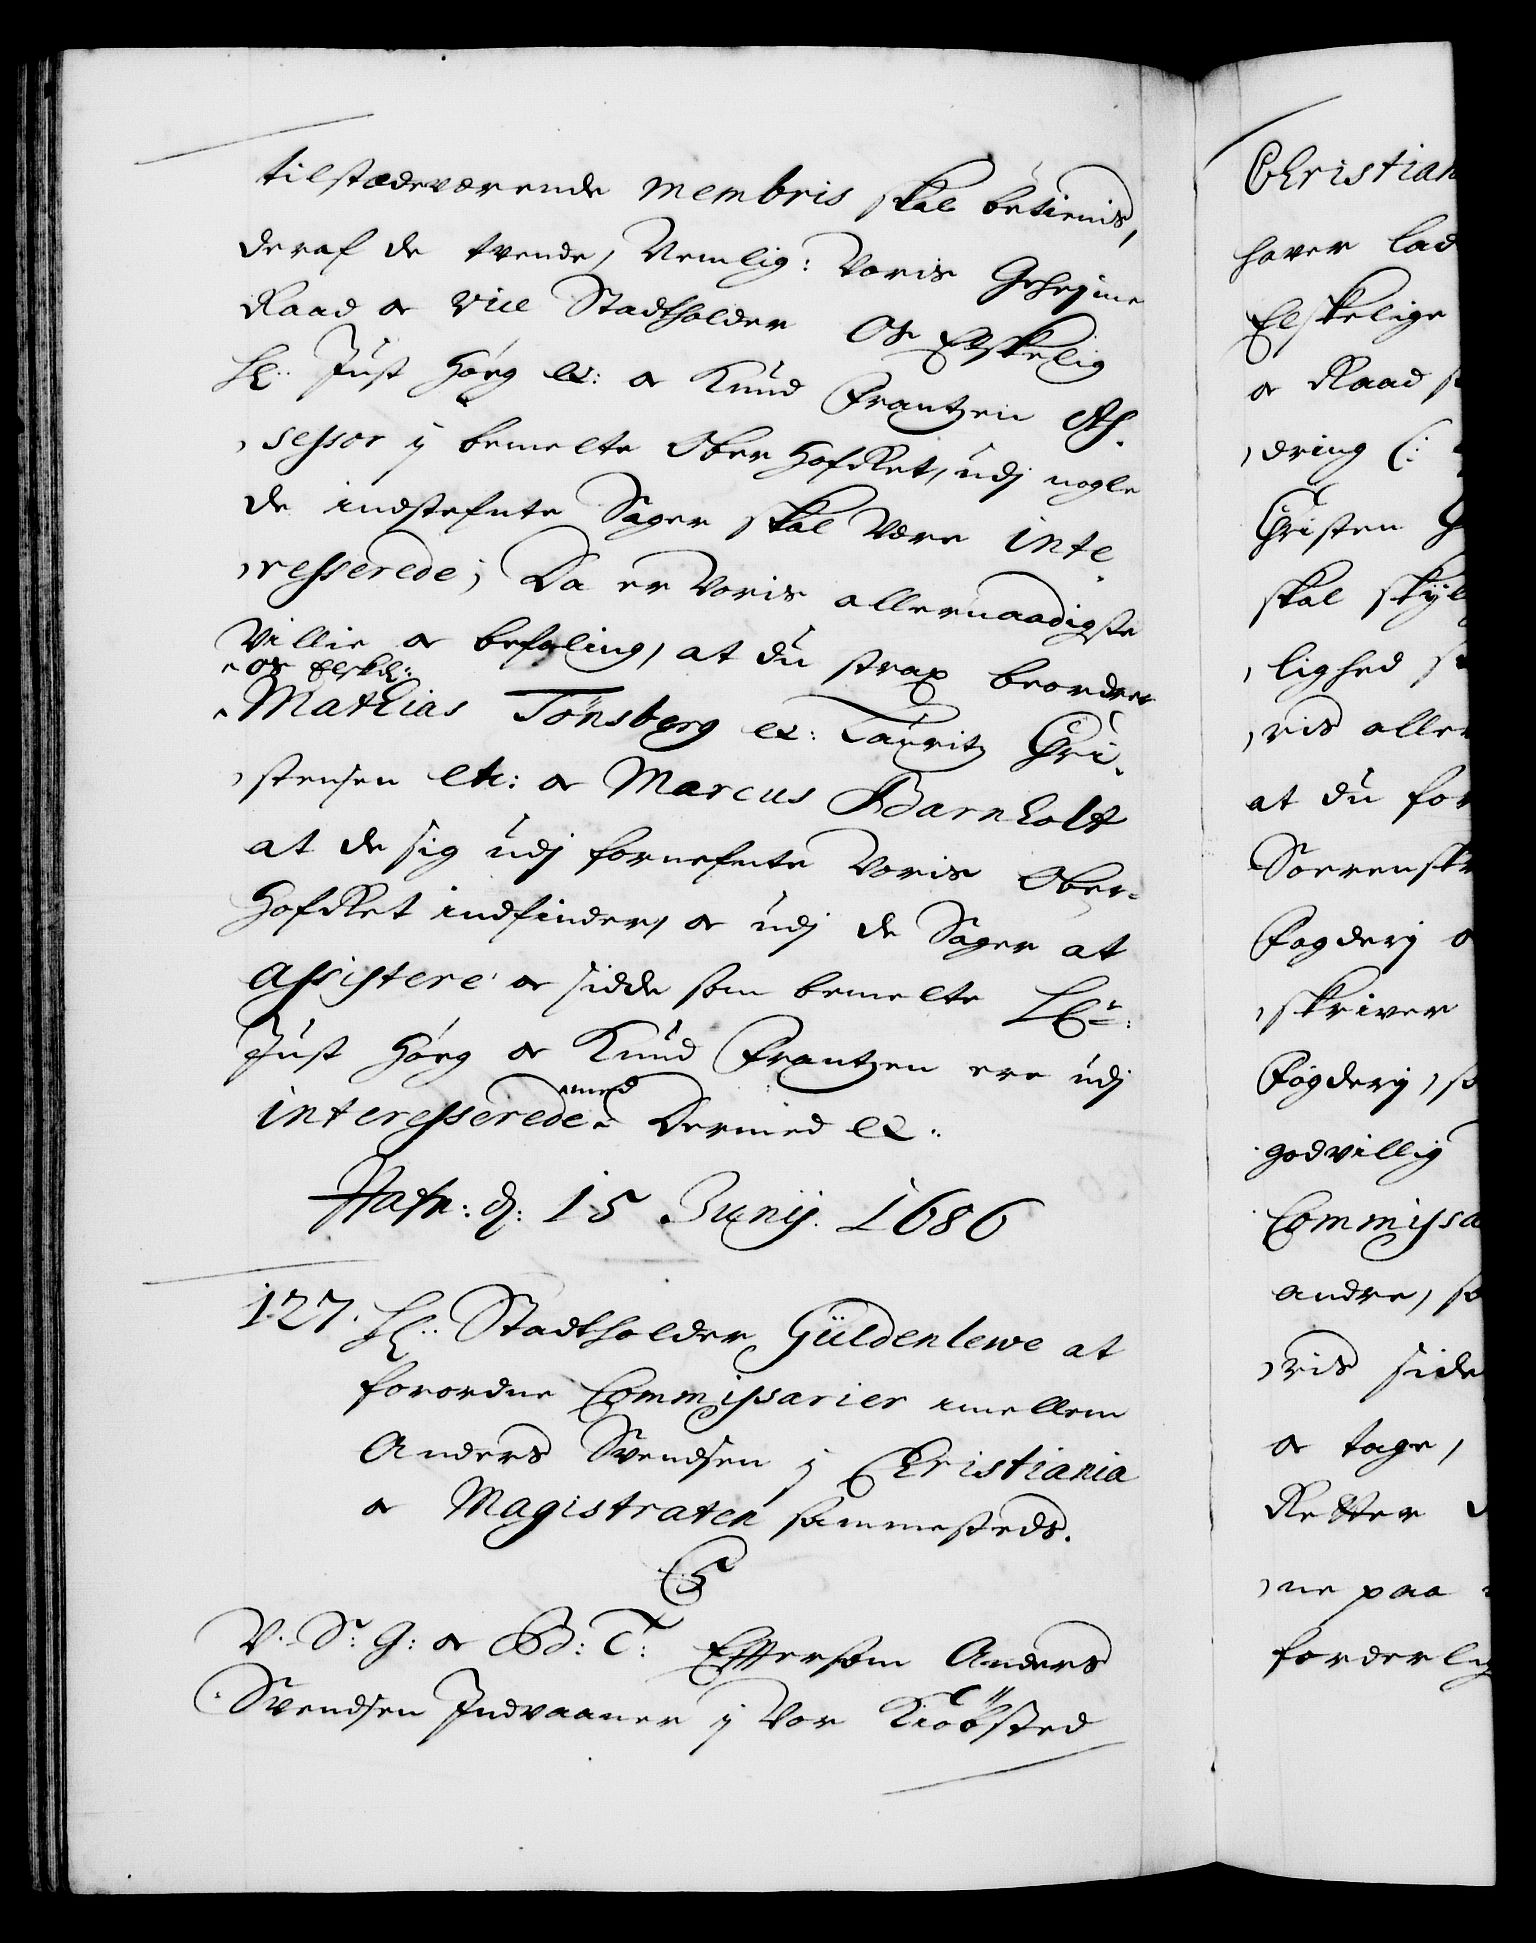 tilstædeværende membris skal betienis,
deraf de tvende, Nemlig: Voris Geheime
Raad oc Vice Stadtholder Os Elskelig
Hr: Just Høeg etc: oc Knud Frantzen As-
sessor i bemelte Ober Hofret, udj nogle
de indstefnte Sager skal være inte-
resserede; Da er Voris allernaadigste
Villie oc befaling, at du strax beordrer
os Elskel:
Mathias Tonsberg etc: Lauritz Chri-
stensen etc: oc Marcus Barnholt
at de sig udj fornefnte Voris Ober-
Hofret indfinder, oc udj de Sager at
assistere oc sidde som bemelte Hr:
Just Høeg oc Knud Frantzen ere udj
med
interesserede. Dermed etc:
Hafn: d: 15 Junij. 1686
127. Hr: Stadtholder Güldenlewe at
forordne Commissarier imellem
Anders Svendsen i Christiania
oc Magistraten sammesteds.
C5
V. S: G: oc B: T: Eftersom Anders
Svendsen Indvaaner i Vor Kiøbsted
Christian
haver lad
Elskelige
oc Raad
dring
Christen
skal skyl
lighed
ris aller
at du for
Sorenskr
Fogderj
skriver
Fogderj, so
godvillig
Commissa
andre, so
ris side
oc tage,
Retter
ne paa
forderlig